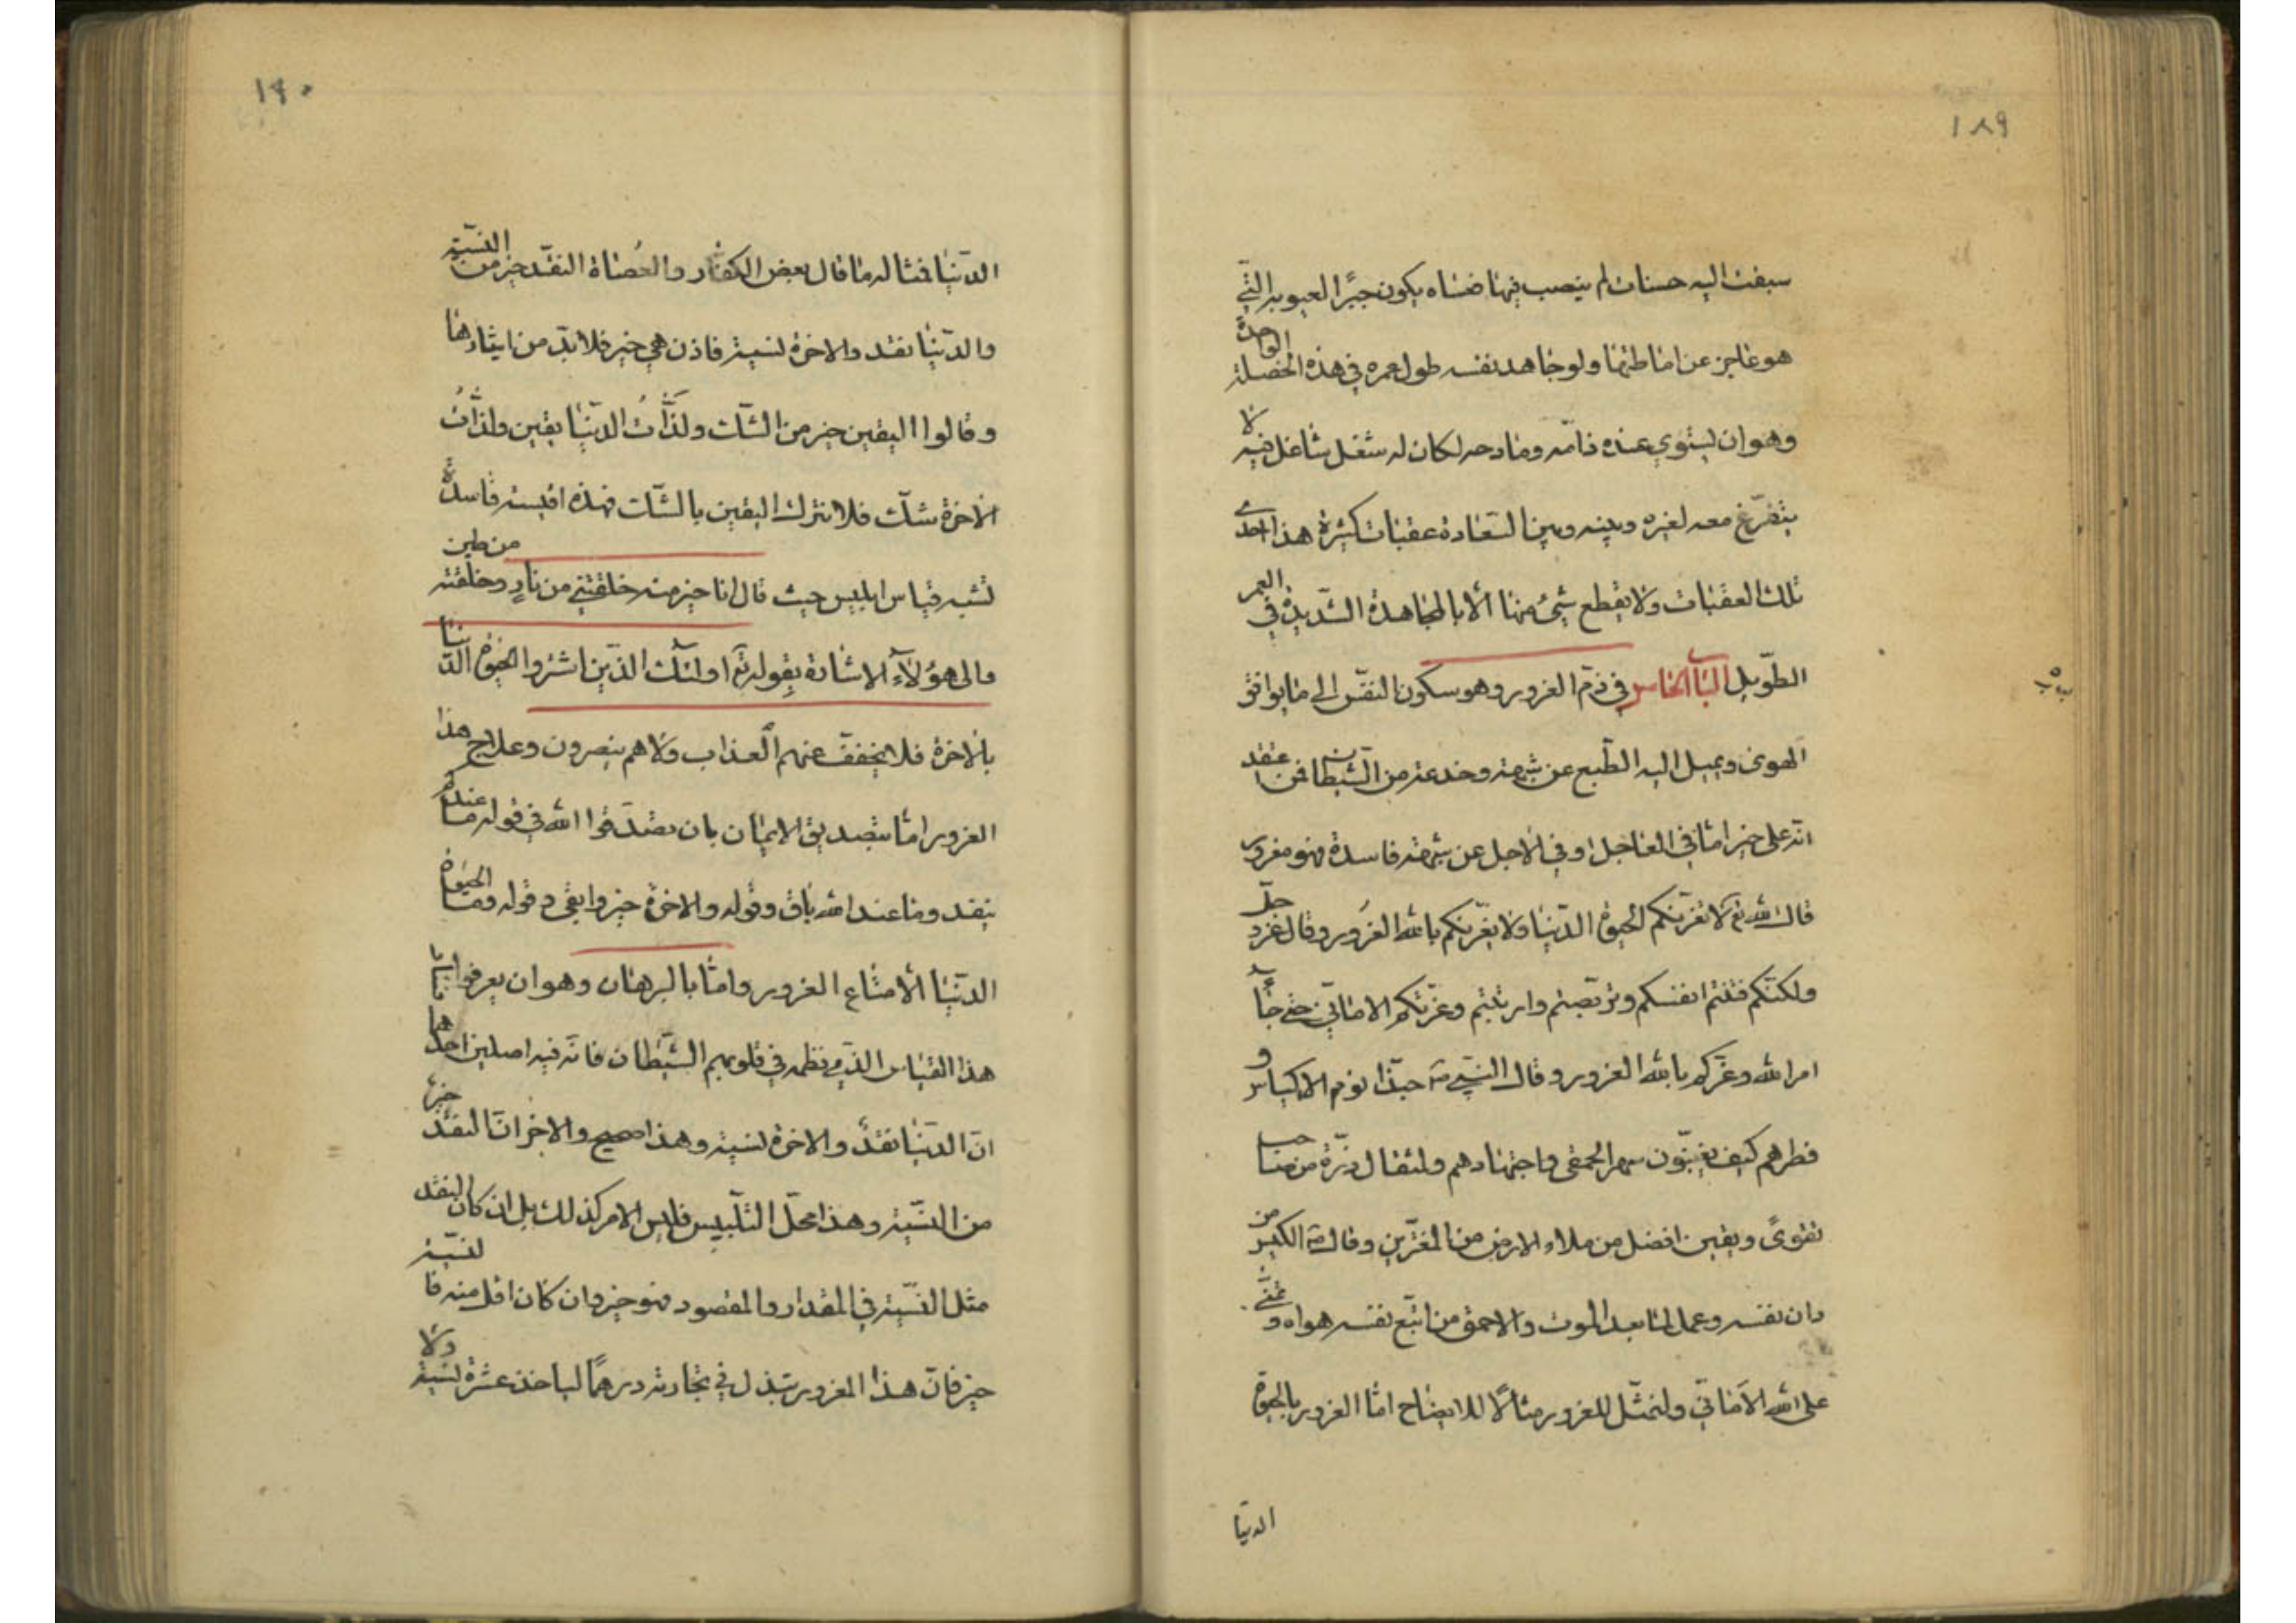 ١٨٩
سبقت اليه حسنات لم ينصب فيها فعساه يكون جبرًا لعيوبه التي
هو عاجز عن اماطتها ولو جاهد نفسه طول عمره في هذه الخصلة الواحدة
وهو ان يستوي عنده ذامّه ومادحه لكان له شغل شاغل فيه لا
يتفرّغ معه لغيره وبينه وبين السّعادة عقبات كثيرة هذا احدى
تلك العقبات ولا يقطع شيء منها الّا بالمجاهدة الشّديدة في العمر
الطّويل الباب الخامس في ذمّ الغرور وهو سكون النفس الى ما يوافق
الهوى ويميل اليه الطّبع عن شبهة وخدعة من الشّيطان فمن اعتقد
انّه على خير امّا في العاجل او في الاجل عن شبهة فاسدة فهو مغرور
قال الله تع لا تغرّنّكم الحيوة الدّنيا ولا يغرّنّكم بالله الغَرور وقال عزّ و جلّ
ولكنّكم فتنتم انفسكم وتربّصتم وارتبتم وغرّتكم الامانيّ حتى جآء
امر الله وغرّكم بالله الغرور وقال النبيّ ص حبّذا نوم الاكياس و
فطرهم كيف يغبنون سهر الحمقى واجتهادهم ولمثقال ذرّة من صاحب
تقوىً ويقين افضل من ملاء الارض من المغترّين وقال ص الكيّس من
دان نفسه وعمل لما بعد الموت والاحمق من اتبّع نفسه هواه و تمنّى
على الله الامانيّ ولنمثّل للغرور مثالًا للايضاح امّا الغرور بالحيوة
الدنيا
١٩٠
الدّنيا فمثاله ما قال بعض الكفّار والعُصاة النقد خير من النسّية
والدّنيا نقد والاخرة نسية فاذن هي خير فلا بدّ من ايثارها
وقالوا اليقين خير من الشّك ولذّاتُ الدّنيا يقين ولذّاتُ
الاخرة شكّ فلا نترك اليقين بالشّك فهذه اقيسة فاسدة
تشبه قياس ابليس حيث قال انا خير منه خلقتني من نارٍ وخلقته من طين
والى هؤلآء الاشارة بقوله تع اولئك الذّين اشتروا الحيوة الدّنيا
بالاخرة فلا يخفّف عنهم العذاب ولا هم ينصرون وعلاج هذا
الغرور امّا بتصديق الايمان بان يصدّقوا الله في قوله ما عندكم
ينفد وما عند الله باق وقوله والاخرة خير وابقى وقوله وما الحيوة
الدّنيا الّا متاع الغرور وامّا بالبرهان وهو ان يعرفوا انّ
هذا القياس الذّي نظمه في قلوبهم الشّيطان فانّه فيه اصلين احدهما
انّ الدّنيا نقدٌ والاخرة نسية وهذا صحيح والاخر انّ النقد خيرٌ
من النسّية وهذا محلّ التلّبيس فليس الامر كذلك بل ان كان النقد
مثل النسّية في المقدار والمقصود فهو خير وان كان اقل منه فالنسّية
خير فانّ هذا المغرور يبذل في تجارته درهمًا لياخذ عشرة نسية ولا